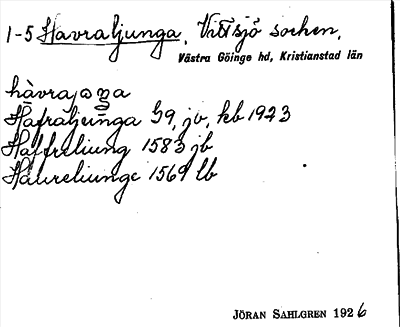 1-5 Havraljunga, Vittsjö socken,
Västra Göinge hd, Kristianstad län
Hafraljunga G9, jv, kb 1923
Haffreliung 1583 jb
Haureliunge 1569 lb
JÖRAN SAHLGREN 1926